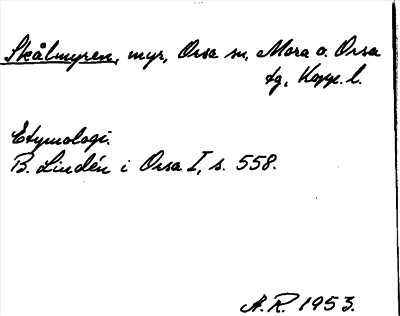 Skålmyren, myr, Orsa sn, Mora o. Orsa
tg, Kopp. l.
Etymologi.
B. Lindén i Orsa I, s. 558.
A.R. 1953.